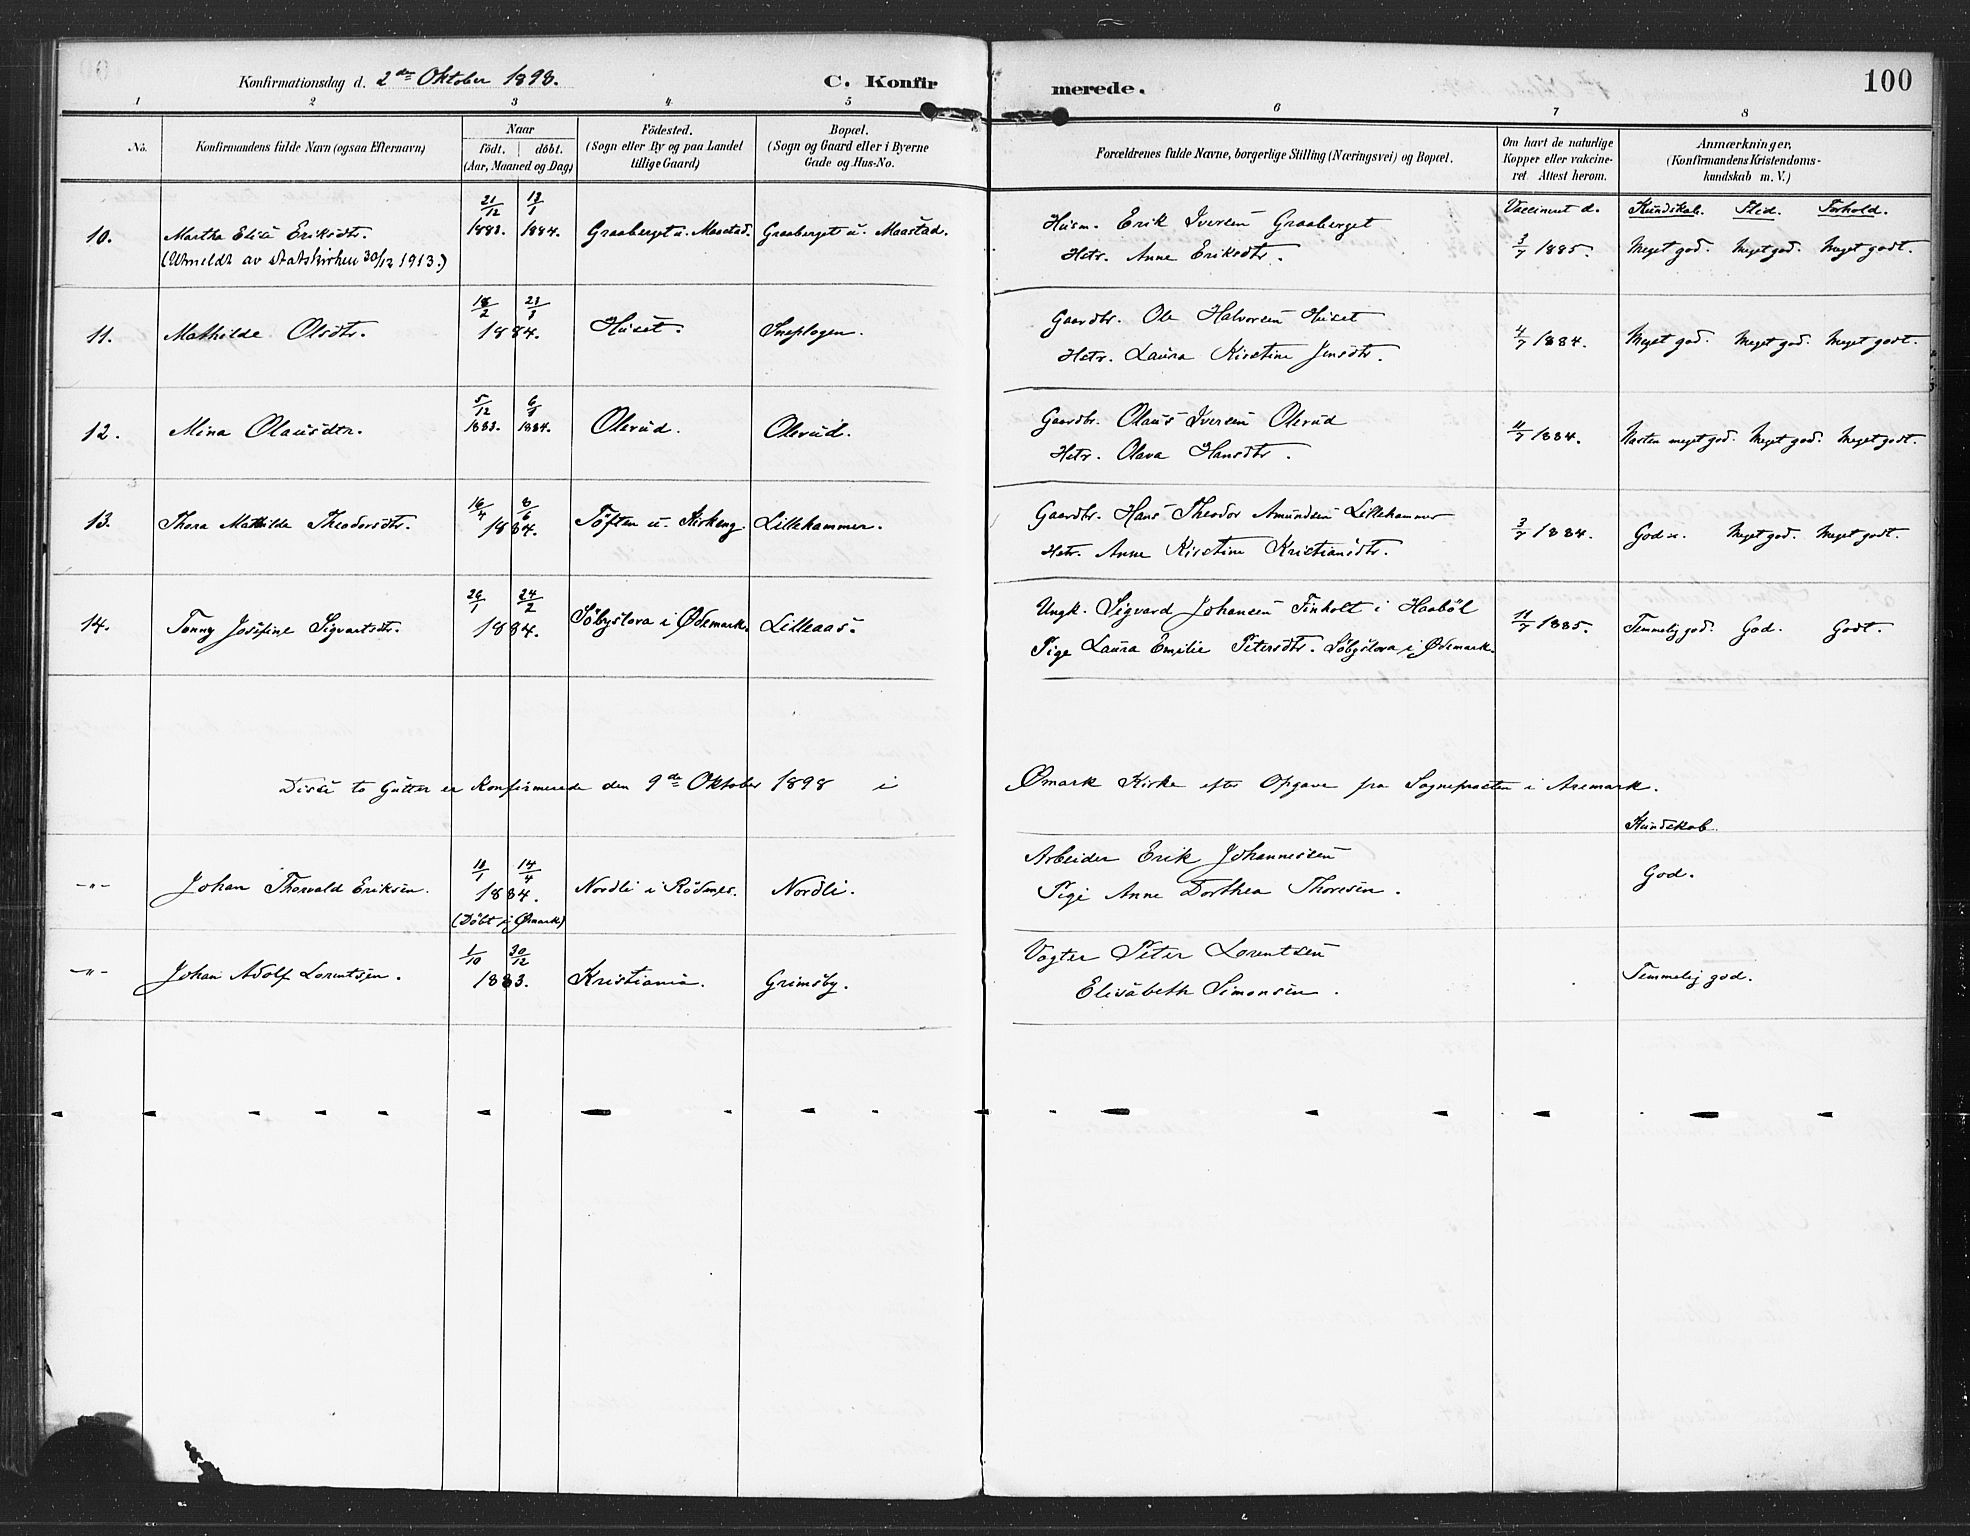 Konfirmationsdag d. 2den Oktober 1898.
C. Konfirmerede.
100
1 2 3 4 5 6 7 8
No.
Konfirmandens fulde Navn (ogsaa Efternavn)
Naar
födt. döbt.
(Aar, Maaned og Dag)
Födested.
(Sogn eller By og paa Landet
tillige Gaard)
Bopæl.
(Sogn og Gaard eller i Byerne
Gade og Hus-No.
Forældrenes fulde Navne, borgerlige Stilling (Næringsvei) og Bopæl.
Om havt de naturlige
Kopper eller vakcine-
ret Attest herom.
Anmærkninger,
(Konfirmandens Kristendoms-
kundskab m. V.)
Vaccineret d. Kundskab. Flid. Forhold.
10. Martha Elise Eriksdtr. 21/12 1883. 13/1 1884. Graaberget u. Maastad. Graaberget u. Maastad. Husm. Erik Iversen Graaberget 3/7 1885. Meget god. Meget god. Meget godt.
(Utmeldt av statskirken 30/12 1913.) Hstr. Anne Eriksdtr.
11. Mathilde Olsdtr. 18/2 23/3 1884. Huset. Sneplogen. Gaardbr. Ole Halvorsen Huset 4/7 1884. Meget god. Meget god. Meget godt.
Hstr. Laura Kirstine Jensdtr.
12. Mina Olausdtr. 5/12 1883. 6/1 1884. Olerud. Olerud. Gaardbr. Olaus Iversen Olerud 11/7 1884. Næsten meget god. Meget god. Meget godt.
Hstr. Olava Hansdtr.
13. Thora Mathilde Theodorsdtr. 16/4 8/6 1884. Töften u. Kirkeng. Lillehammer. Gaardbr. Hans Theodor Amundsen Lillehammer 3/7 1884. God. Meget god. Meget godt.
Hstr. Anne Kirstine Kristiansdtr.
14. Tonny Josefine Sigvartsdtr. 26/1 24/2 1884. Söbyslora i Ødemark. Lilleaas. Ungk. Sigvard Johansen Finholt i Haaböl 11/7 1885. Temmelig god. God. Godt.
Pige Laura Emilie Petersdtr. Söbyslora i Ødemark.
Disse to Gutter er Konfirmerede den 9de Oktober 1898 i Ømark Kirke efter Opgave fra Sognepræsten i Aremark.
Kundskab.
-"- Johan Thorvald Eriksen. 18/1 14/4 1884. Nordli i Rödenes. Nordli. Arbeider Erik Johannessen God.
(Döbt i Ømark) Pige Anne Dorthea Thoresen.
-"- Johan Adolf Lorentsen. 1/10 30/12 1883. Kristiania. Grimsby. Vogter Peter Lorentsen Temmelig god.
Elisabeth Simonsen.